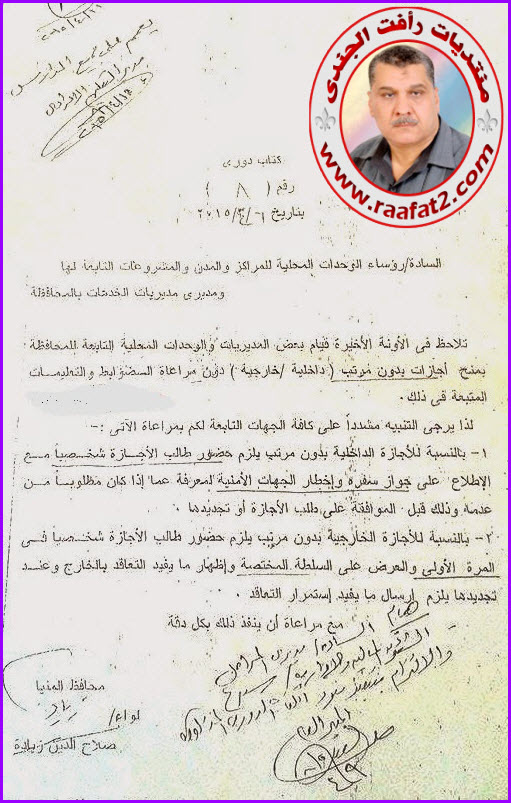 منتديات رأفت الجندى
www.raafat2.com
كتاب دورى
رقم ( ٨ )
بتاريخ / /٢٠١٥
السادة/رؤساء الوحدات المحلية للمراكز والمدن والمشروعات التابعة لها
ومديرى مديريات الخدمات بالمحافظة
تلاحظ فى الأونة الأخيرة قيام بعض المديريات والوحدات المحلية التابعة للمحافظة
بمنح أجازات بدون مرتب ( داخلية /خارجية ) دون مراعاة الضوابط والتعليمات
المتبعة فى ذلك .
لذا يرجى التنبيه مشدداً على كافة الجهات التابعة لكم بمراعاة الآتى :-
١- بالنسبة للأجازة الداخلية بدون مرتب يلزم حضور طالب الأجازة شخصياً مع
الإطلاع على جواز سفره وإخطار الجهات الأمنية لمعرفة عما إذا كان مطلوباً من
عدمه وذلك قبل الموافقة على طلب الأجازة أو تجديدها .
٢- بالنسبة للأجازة الخارجية بدون مرتب يلزم حضور طالب الأجازة شخصياً فى
المرة الأولى والعرض على السلطة المختصة وإظهار ما يفيد التعاقد بالخارج وعند
تجديدها يلزم إرسال ما يفيد إستمرار التعاقد .
مع مراعاة أن ينفذ ذلك بكل دقة
محافظ المنيا
لواء/
صلاح الدين زيادة